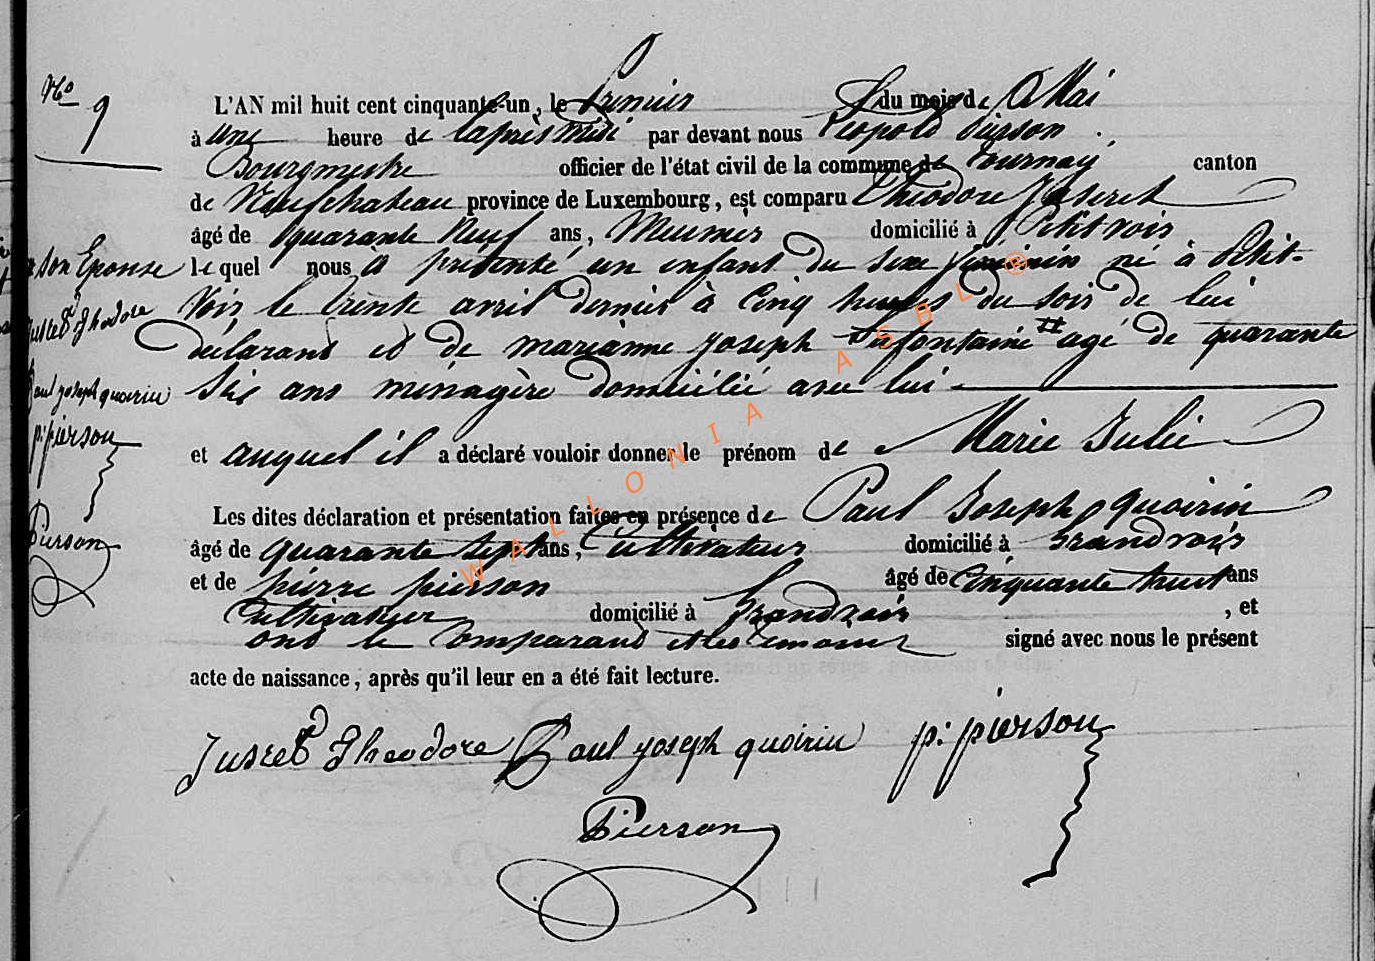 No 9
L'AN mil huit cent cinquante-un, le premier du mois de Mai
à une heure de l'aprèsmidi par devant nous Léopold Pierson
Bourgmestre officier de l'état civil de la commune de Tournay canton
de Neufchateau province de Luxembourg, est comparu Théodore Jusseret
âgé de quarante Neuf ans, Meunier domicilié à Petitvoir
# son Epouse
lequel nous a présenté un enfant du sexe féminin né à Petit-
Voir le trente avril dernier à Cinq heures du soir de lui
Jusret Theodore
déclarant et de marianne joseph Defontaine # agé de quarante
Six ans ménagère domicilié avec lui
Paul joseph quoirin
p: pierson
et auquel il a déclaré vouloir donner le prénom de Marie Julie
Les dites déclaration et présentation faites en présence de Paul Joseph quoirin
Pierson
âgé de quarante sept ans, Cultivateur domicilié à Grandvoir
et de pierre pierson âgé de Cinquante huit ans
Cultivateur domicilié à Grandvoir, et
ont le Comparant et les témoins signé avec nous le présent
acte de naissance, après qu'il leur en a été fait lecture.
Jusret Theodore Paul joseph quoirin p: pierson
Pierson
WALLONIA ASBL ®